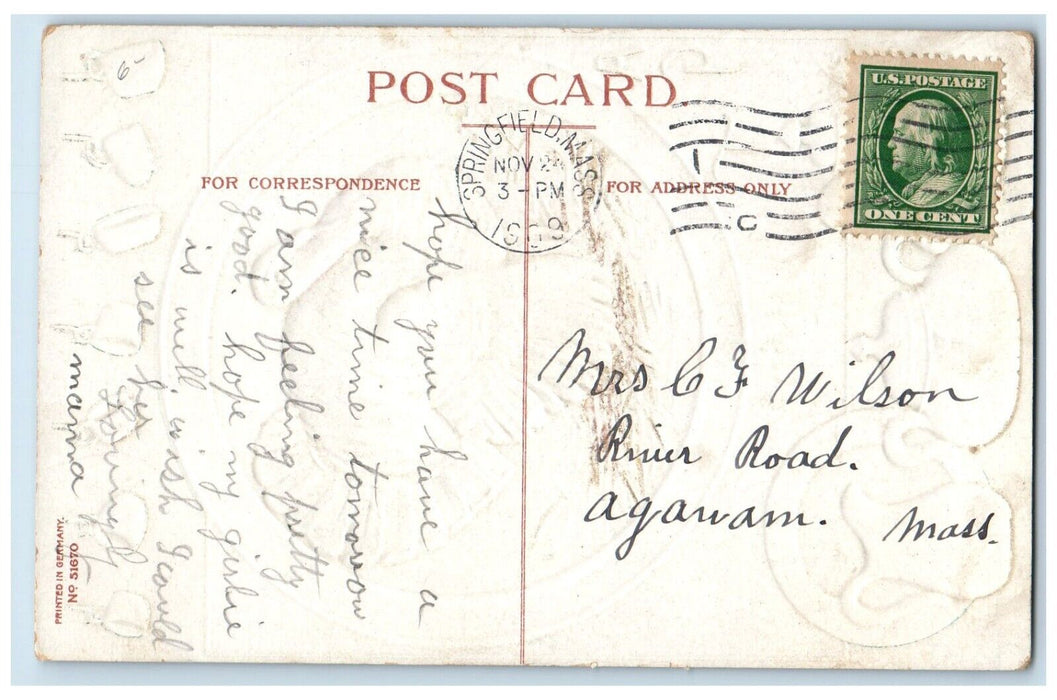 POST CARD
FOR CORRESPONDENCE
FOR ADDRESS ONLY
SPRINGFIELD, MASS
NOV 24
3 - PM
1909
1
C
U.S. POSTAGE
ONE CENT
hope you have a
nice time tomorow
I am feeling pretty
good. hope my girlie
is well, wish I could
see her
Lovingly
mamma
Mrs C F Wilson
River Road.
Agawam. Mass.
PRINTED IN GERMANY.
No 51670
6-